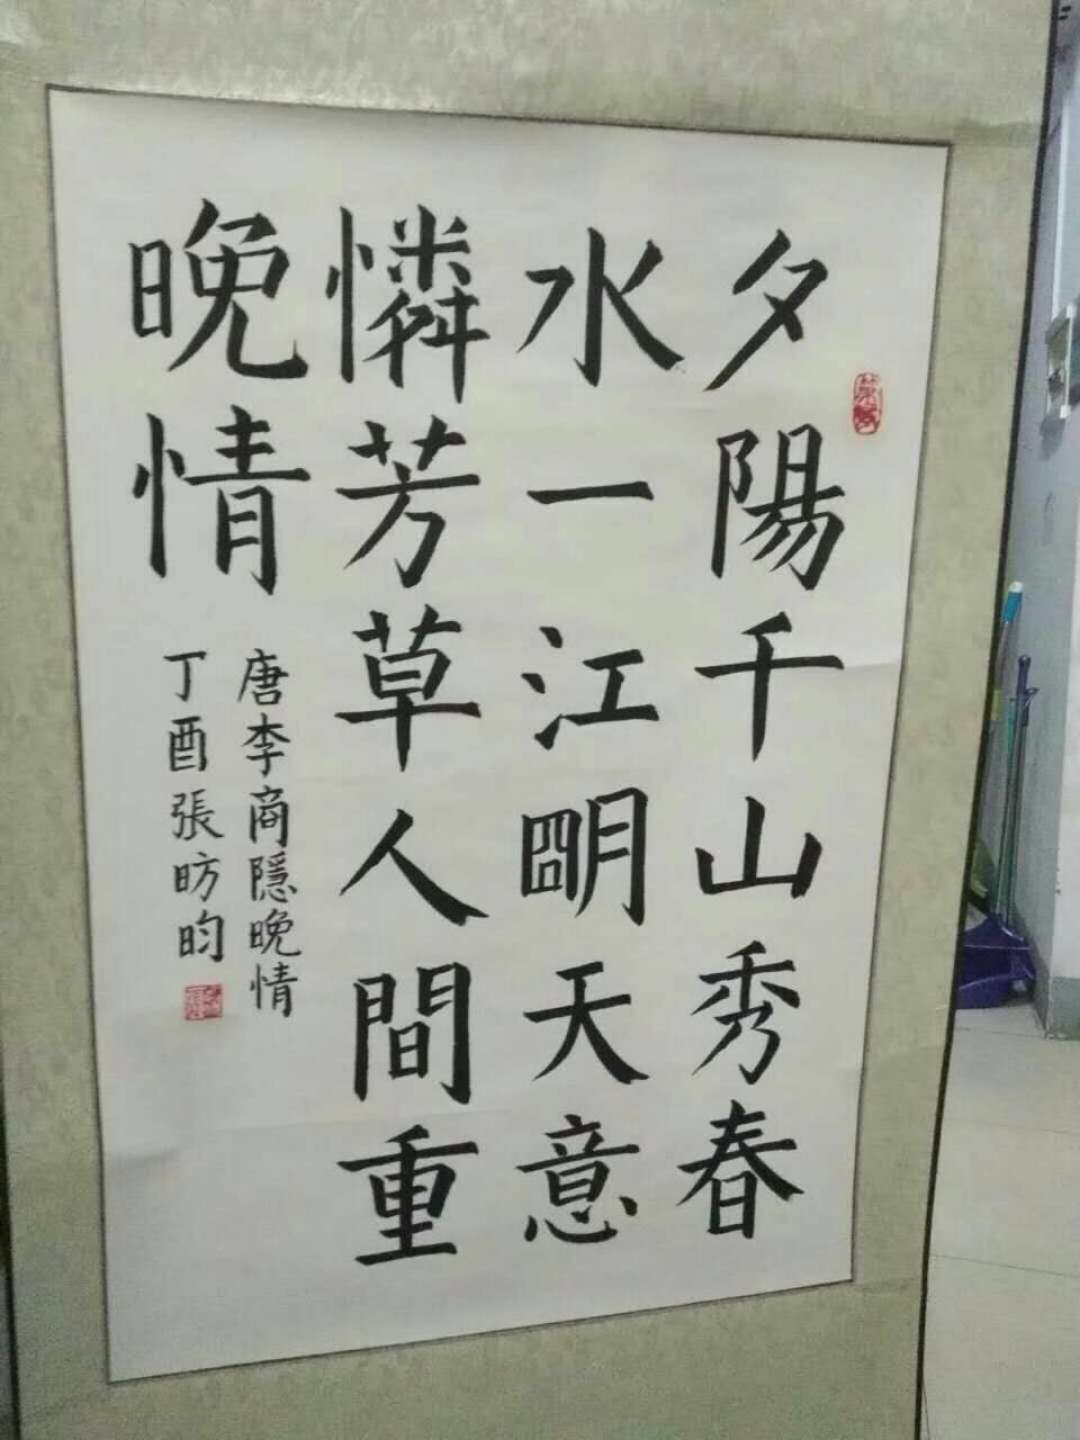 夕陽千山秀春
水一江朙天意
憐芳草人間重
晚情
唐李商隱晚情
丁酉張昉昀